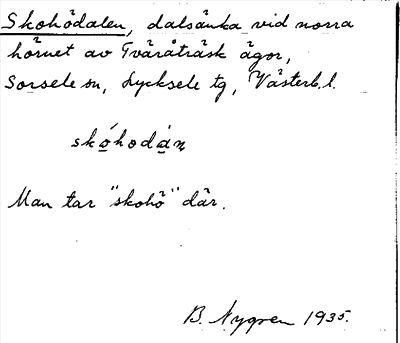 Skohödalen, dalsänka vid norra
hörnet av Tväråträsk ägor,
Sorsele sn, Lycksele tg, Västerb. l.
skóhodàn
Man tar "skohö" där.
B. Nygren 1935.